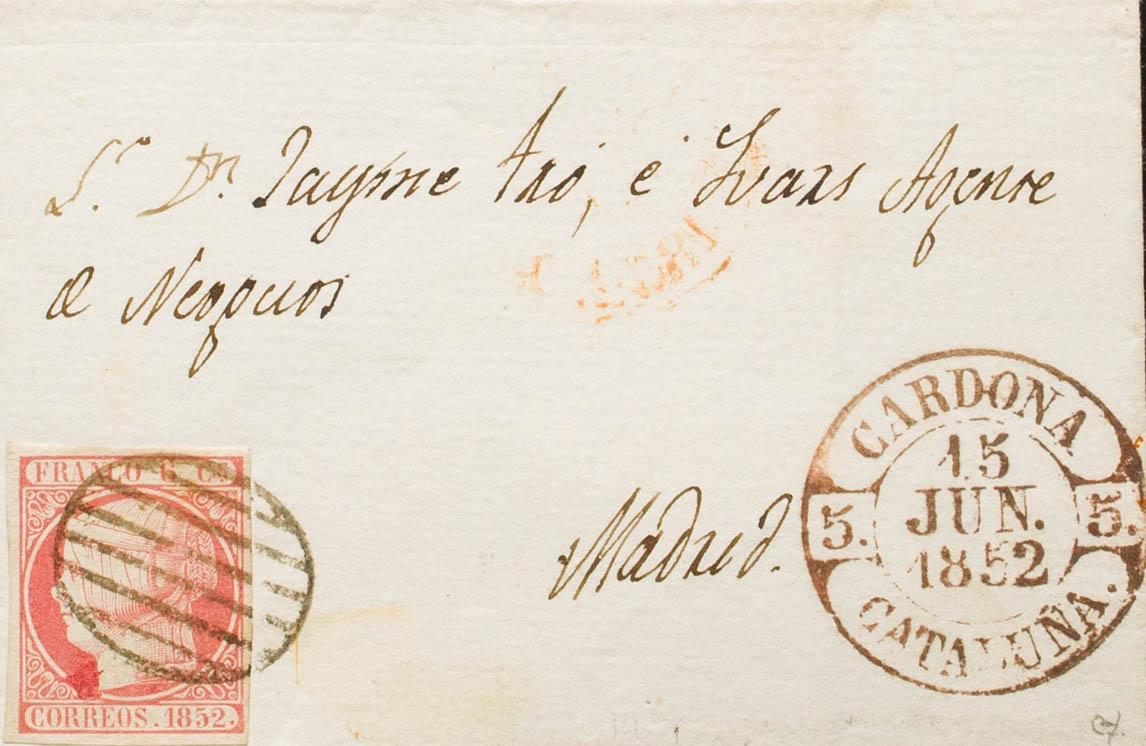 Sr. Dn. Jayme Fró, é Ivars Agente
de Negocios
Madrid.
CARDONA
15
JUN.
1852
5. 5.
CATALUÑA.
FRANCO 6 Cs.
CORREOS. 1852.